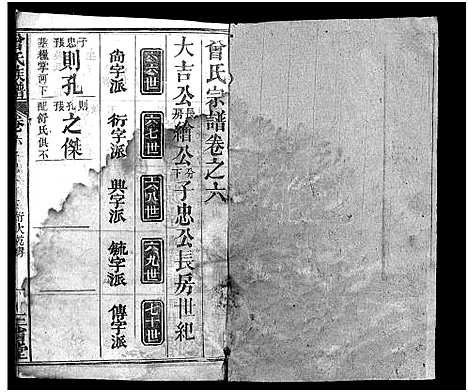 曾氏宗譜卷之六
大吉公長房繪公分下子忠公長房世紀
六六世
六七世
六八世
六九世
七十世
尚字派
衍字派
興字派
毓字派
傳字派
子忠長
則孔
基糧掌河下
則孔長
之傑
配舒氏俱不
曾氏族譜
卷六